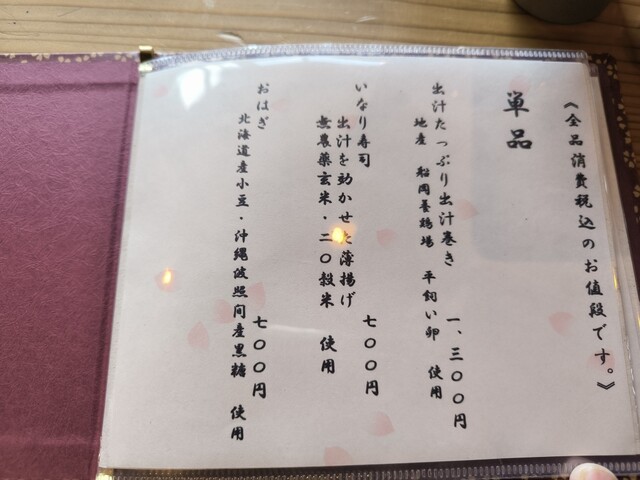 《全品消費税込のお値段です。》
単品
出汁たっぷり出汁巻き 一、三〇〇円
地産 船岡養鶏場 平飼い卵 使用
いなり寿司 七〇〇円
出汁を効かせた薄揚げ
無農薬玄米・二〇穀米 使用
おはぎ 七〇〇円
北海道産小豆・沖縄波照間産黒糖 使用